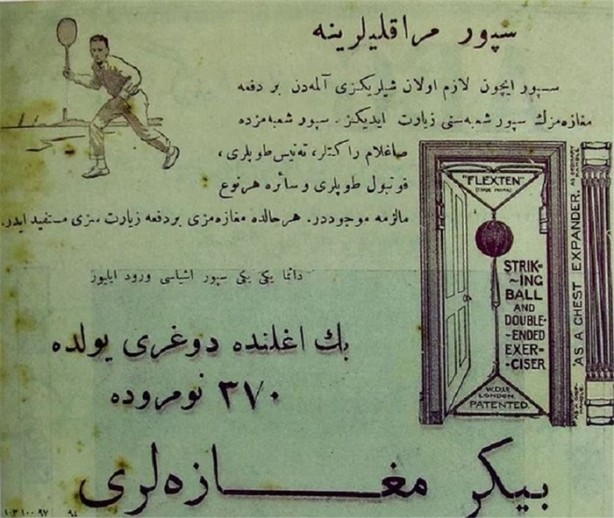 سپور مراقلیلرینه
سپور ایچون لازم اولان شیلریکزی آلمه‌دن بر دفعه
مغازه‌مزك سپور شعبه‌سنی زیارت ایدیکز. سپور شعبه‌مزده
صاغلام راکتلر، ته‌نیس طوپلری،
فوتبول طوپلری و سائره هر نوع
مالزمه موجوددر. هر حالده مغازه‌مزی بر دفعه زیارت سزی مستفید ایدر.
دائما یکی یکی سپور اشیاسی ورود ایلیور
بك اغلنده دوغری یولده
٣٧٠ نومروده
بیکر مغازه‌لری
"FLEXTEN"
STRIK-
-ING
BALL
AND
DOUBLE-
-ENDED
EXER-
-CISER
W.D.L.E
LONDON.
PATENTED.
AS A CHEST EXPANDER.